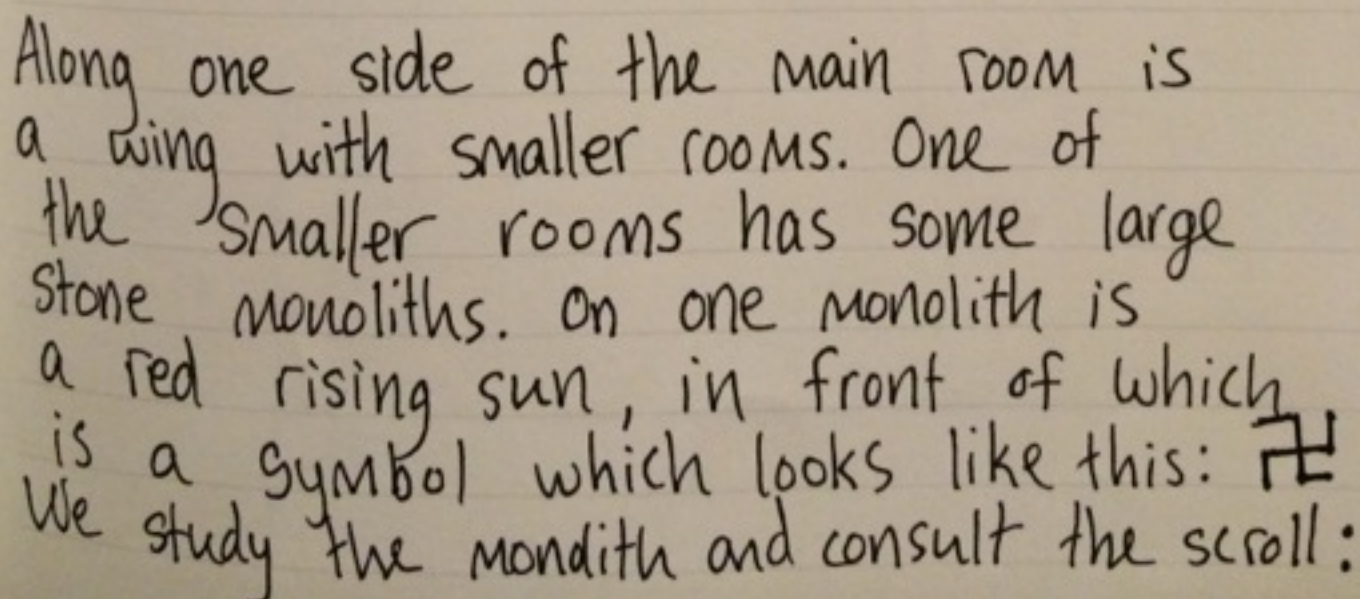 Along one side of the main room is
a wing with smaller rooms. One of
the smaller rooms has some large
stone monoliths. On one monolith is
a red rising sun, in front of which
is a symbol which looks like this: 卍
We study the mondith and consult the scroll: